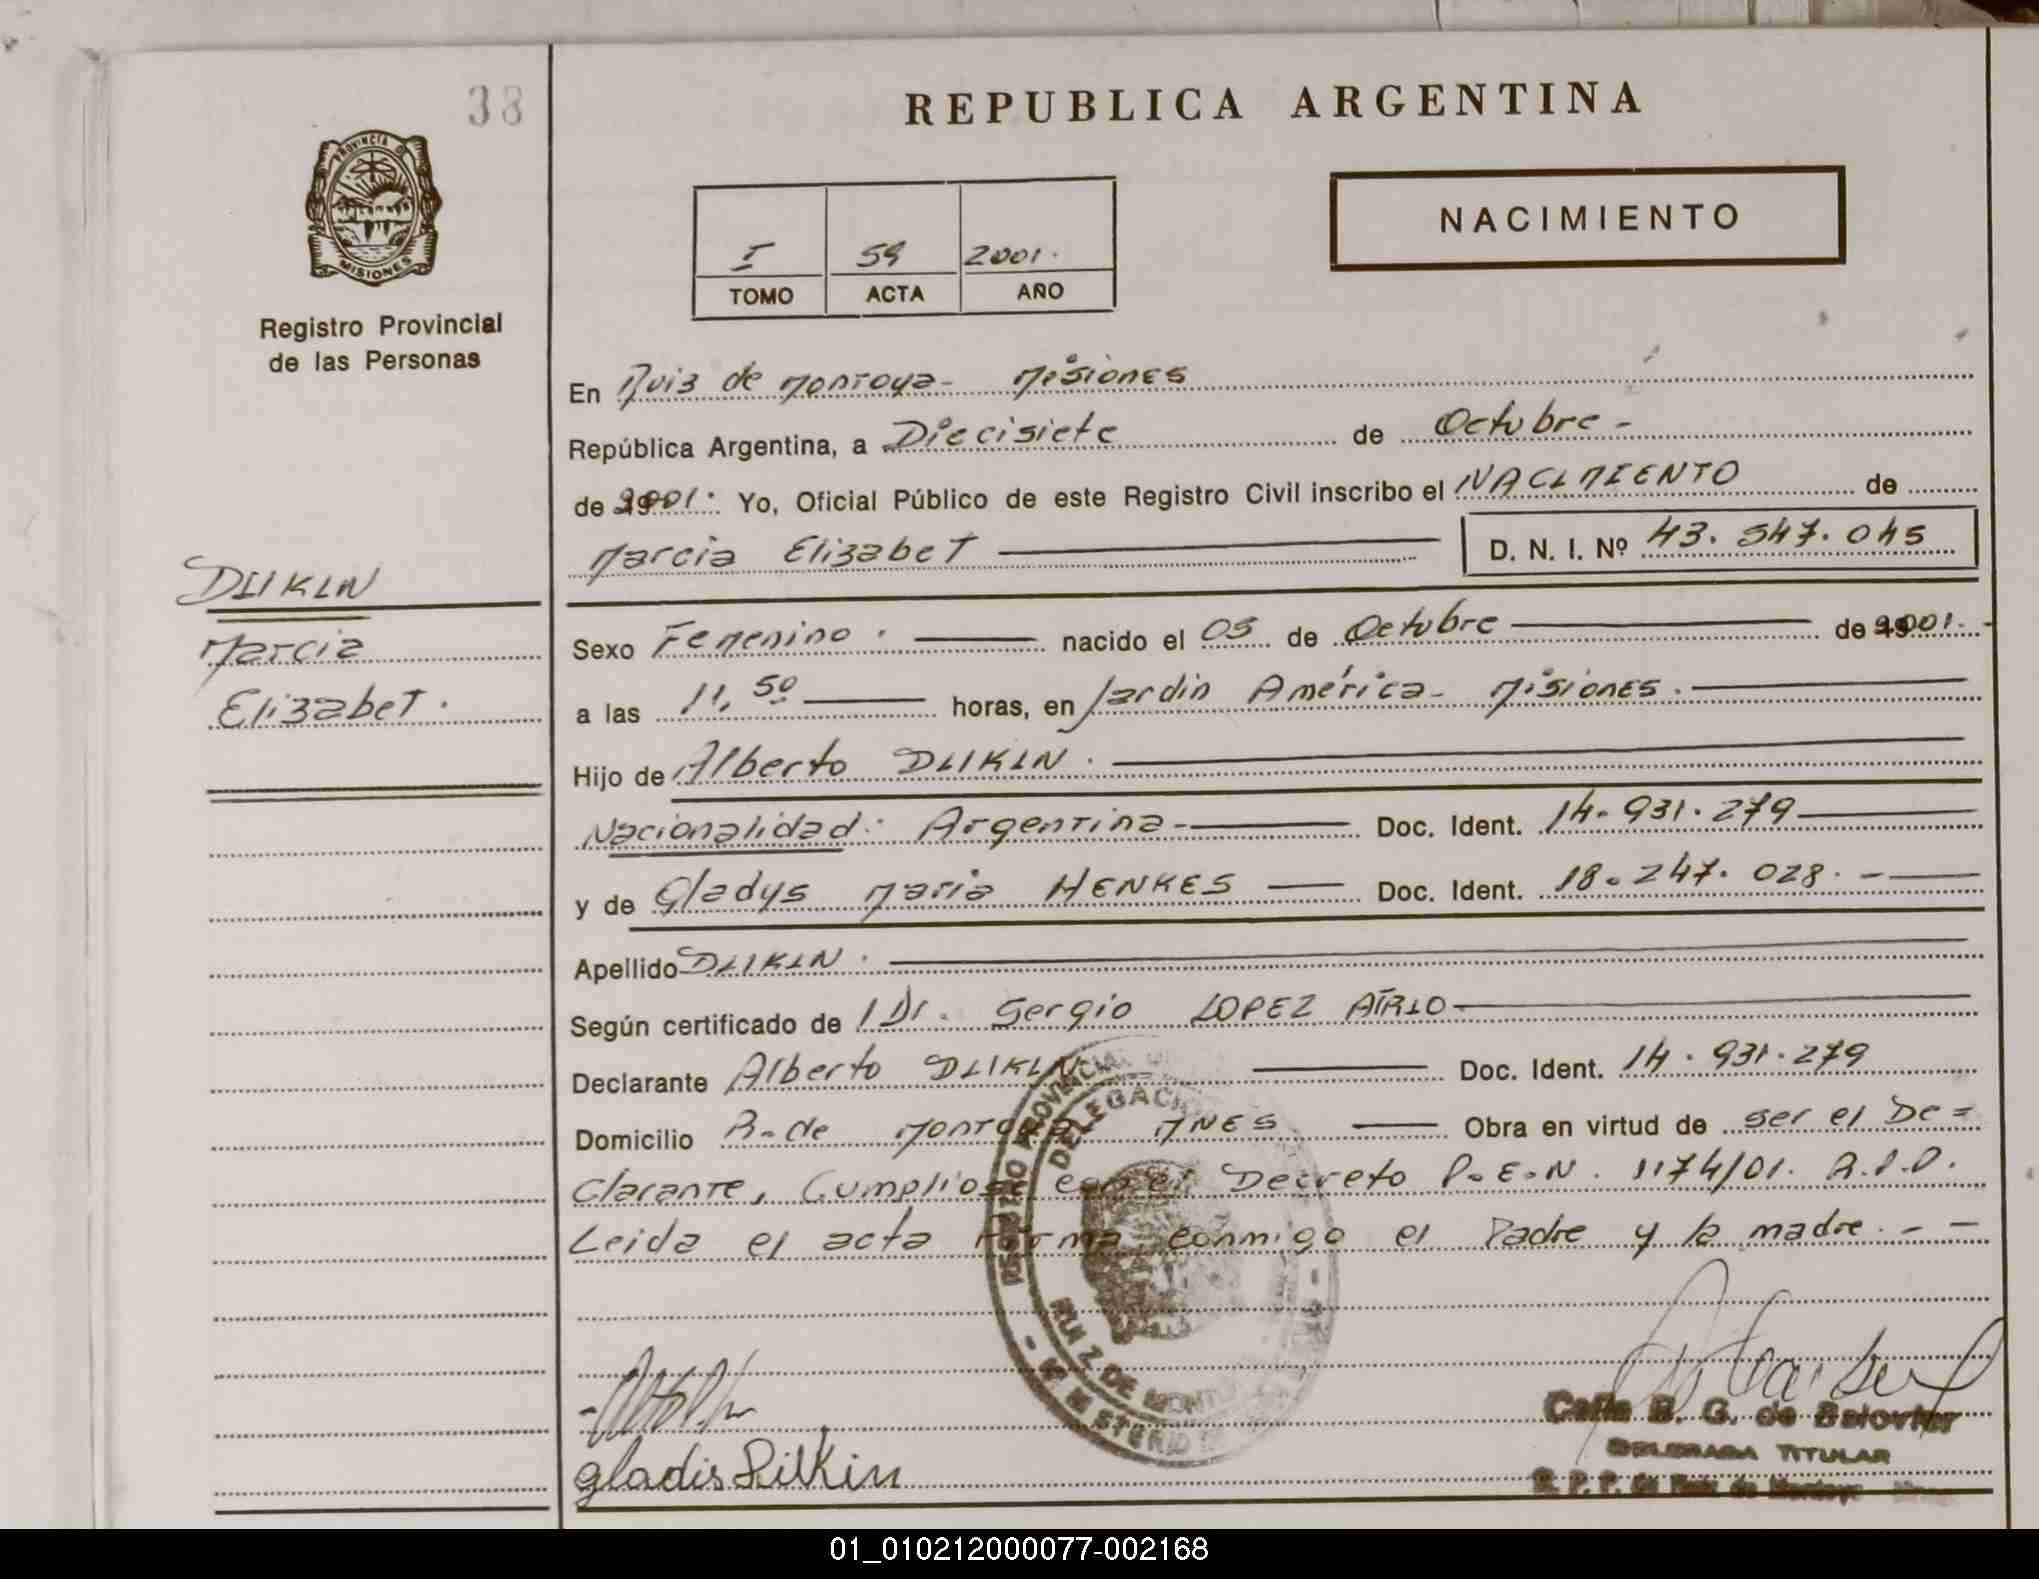 38
REPUBLICA ARGENTINA
PROVINCIA DE
MISIONES
Registro Provincial
de las Personas
I 59 2001.
TOMO ACTA AÑO
NACIMIENTO
En Ruiz de Montoya- Misiones
República Argentina, a Diecisiete de Octubre -
de 2001. Yo, Oficial Público de este Registro Civil inscribo el NACIMIENTO de
Marcia Elizabet D. N. I. Nº 43.547.045
DIIKIN
Marcia
Elizabet.
Sexo Femenino. nacido el 05 de Octubre de 2001.-
a las 11,50 horas, en Jardin América- Misiones.
Hijo de Alberto DIIKIN.
Nacionalidad: Argentina- Doc. Ident. 14.931.279
y de Gladys Maria HENKES Doc. Ident. 18.247.028.-
Apellido DIIKIN.
Según certificado de 1 Dr. Sergio LOPEZ
Declarante Alberto DIIKIN Doc. Ident. 14.931.279
Domicilio R. de Montoya MNES Obra en virtud de ser el De=
clarante, Cumpliose con el Decreto P.E.N. 1174/01.
Leida el acta firma conmigo el Padre y la madre. - -
REGISTRO PROVINCIAL
DELEGACI
RUIZ DE MONTO
MINISTERIO
gladis
B. G. de
DELEGADA TITULAR
R. P. P. de Ruiz de Montoya
01_010212000077-002168